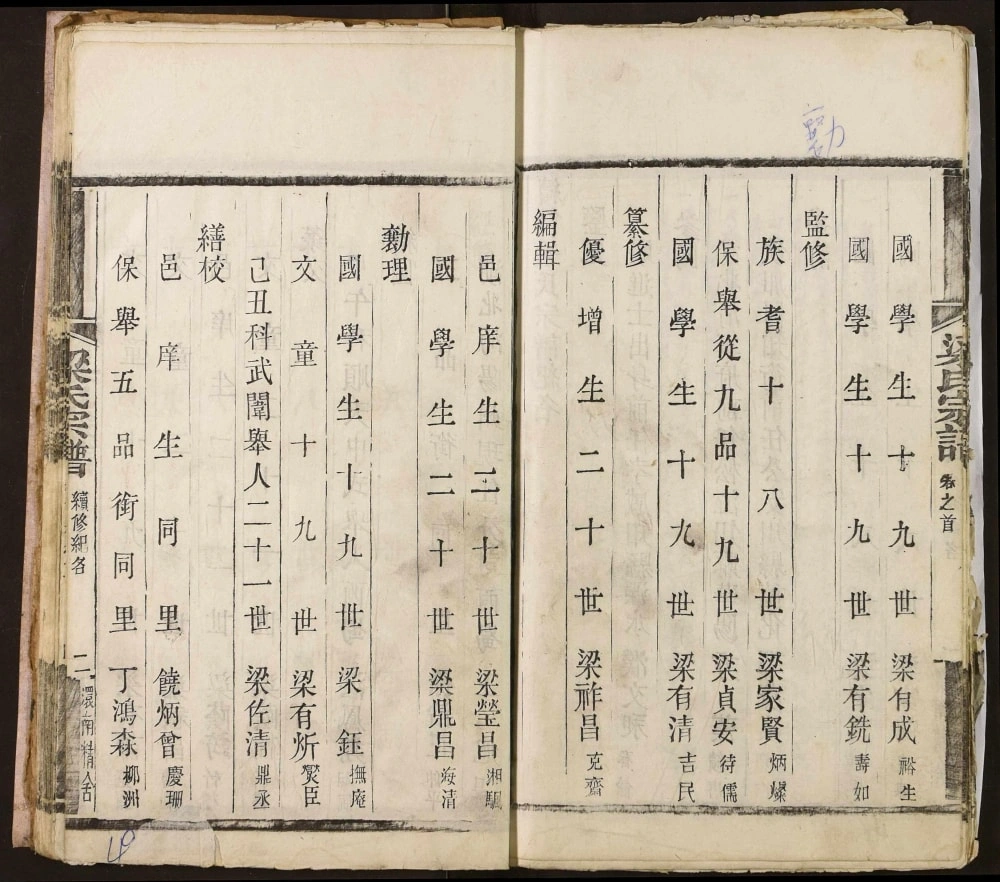 勷
梁氏宗譜
卷之首
國學生十九世梁有成裕生
國學生十九世梁有銑壽如
監修
族耆十八世梁家賢炳燦
保舉從九品十九世梁貞安待儒
國學生十九世梁有清吉民
纂修
優增生二十世梁祚昌克齋
編輯
邑庠生二十世梁瑩昌湘颿
國學生二十世梁鼎昌海清
勷理
國學生十九世梁鈺撫庵
文童十九世梁有炘爕臣
己丑科武闈舉人二十一世梁佐清鼎丞
繕校
邑庠生同里饒炳曾慶珊
保舉五品銜同里丁鴻森柳洲
梁氏宗譜
續修紀名
二